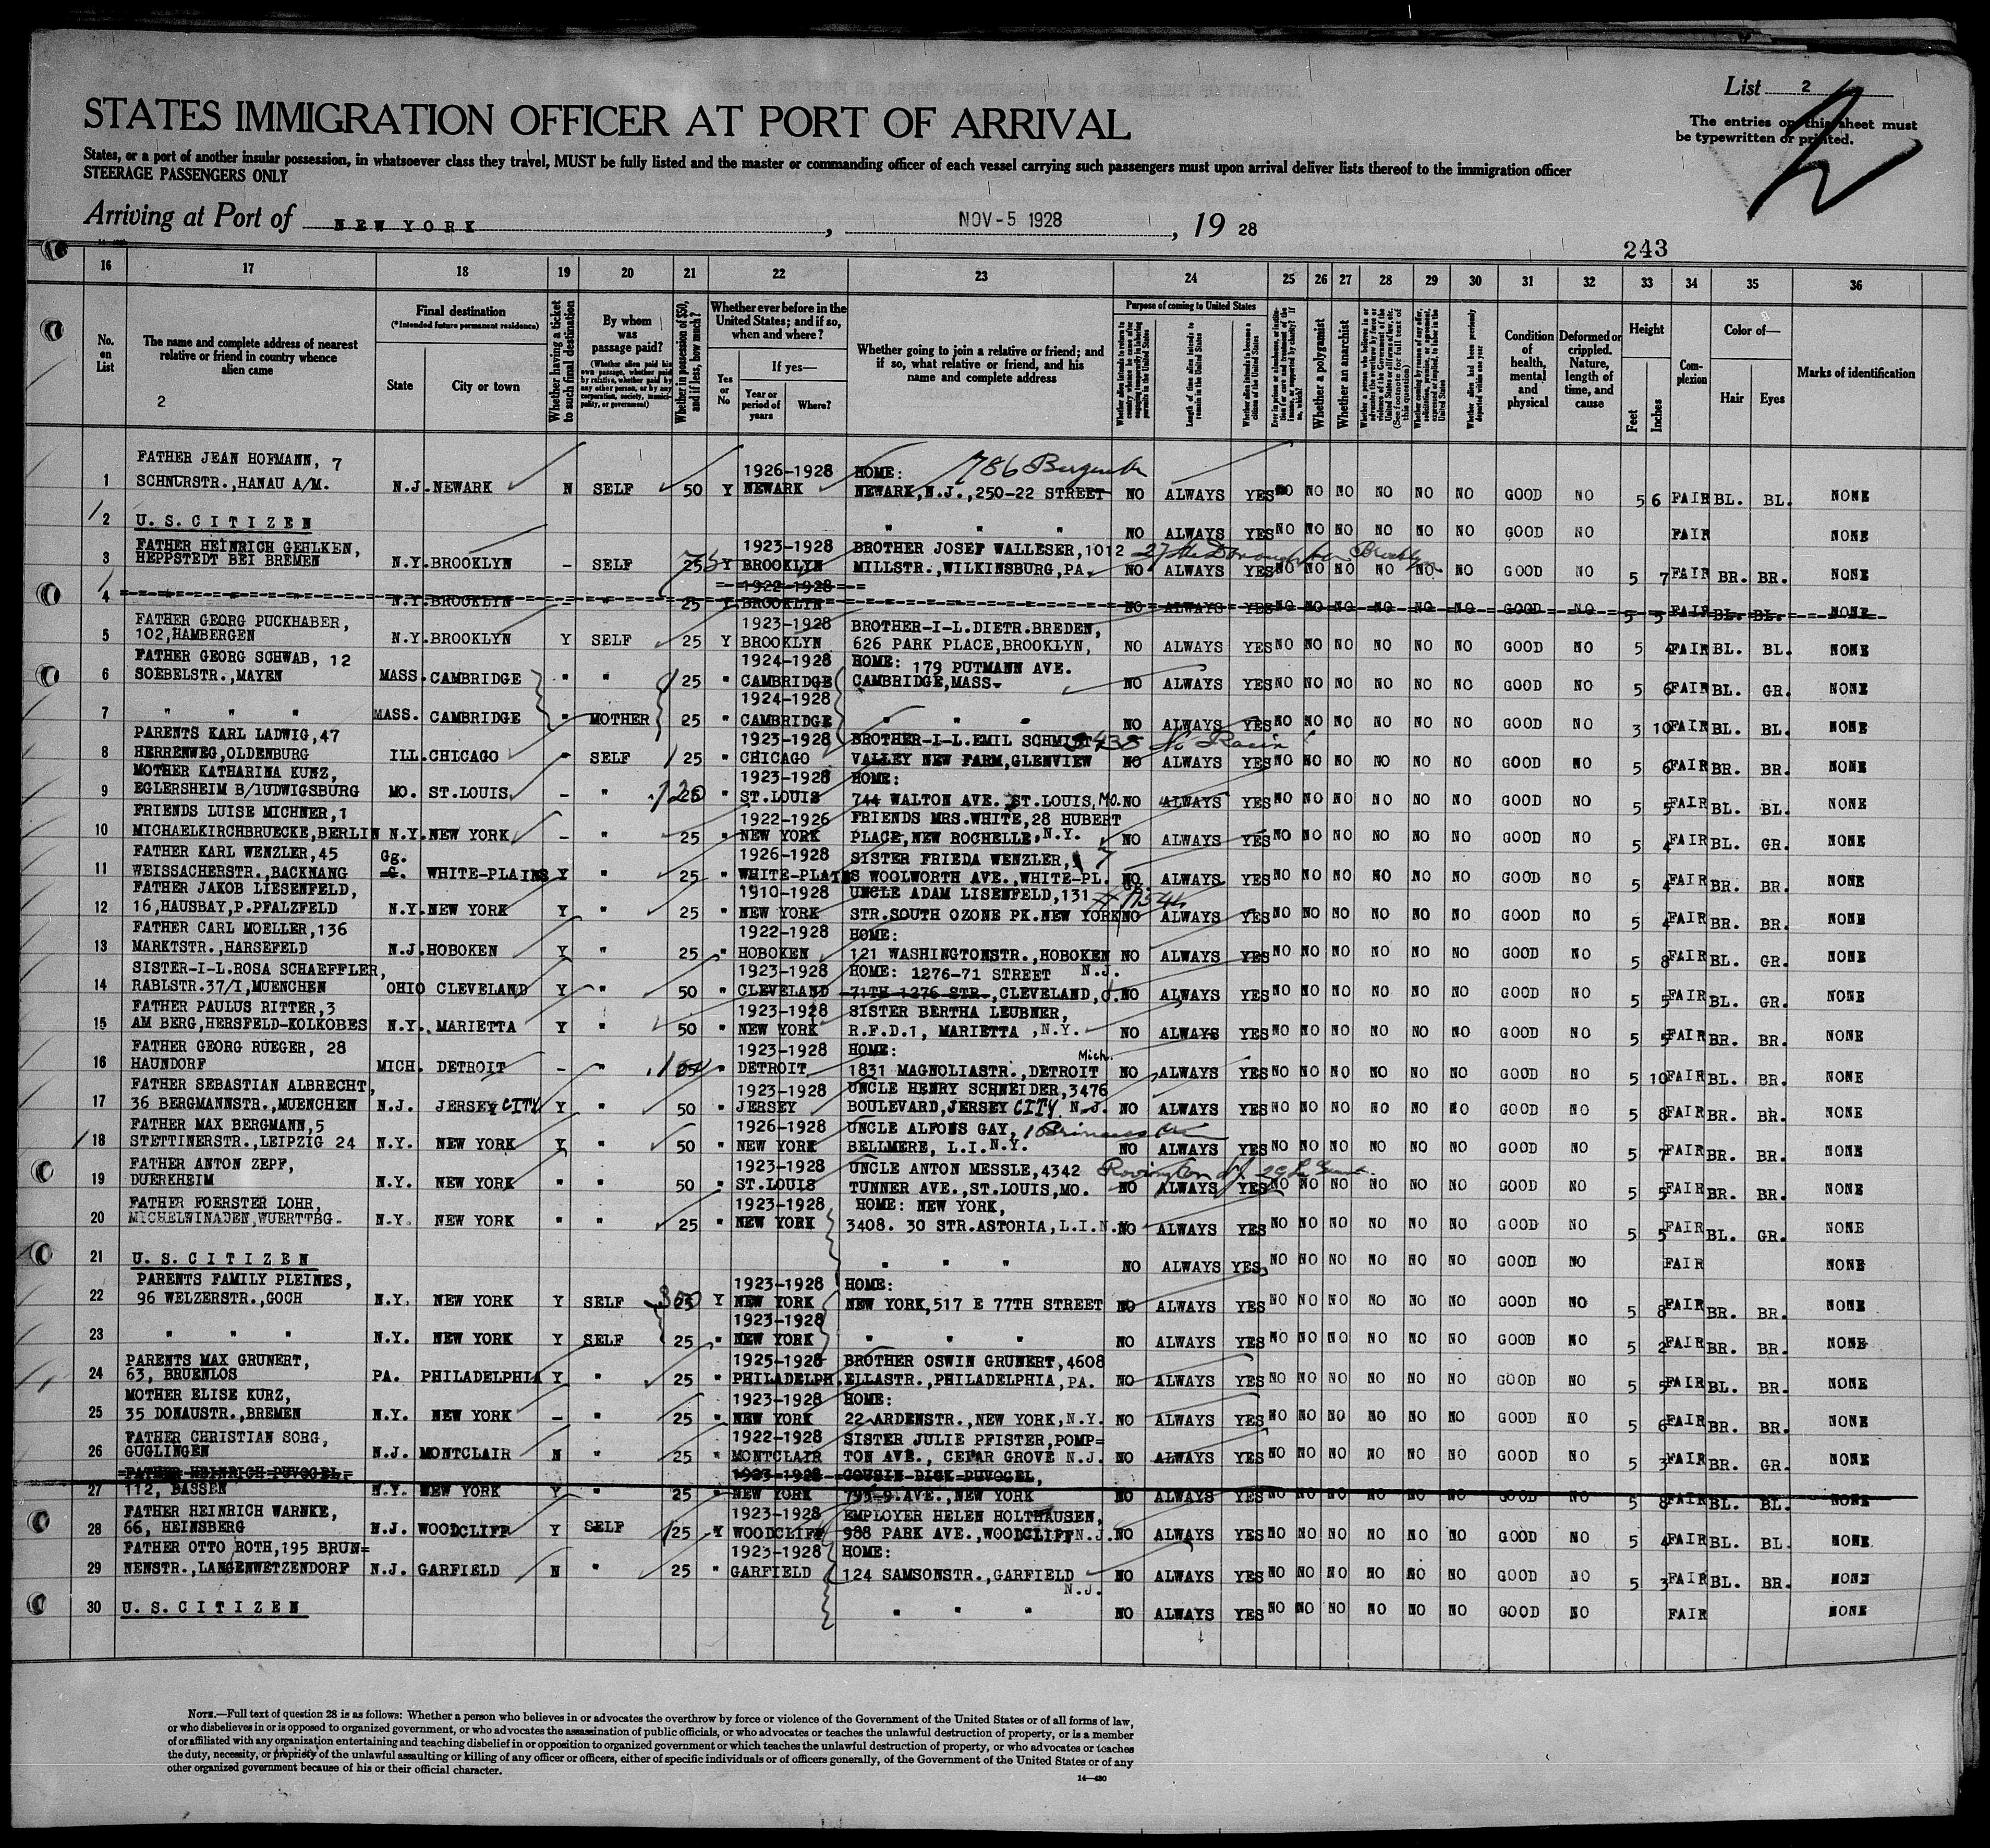 List 2
The entries on this sheet must
be typewritten or printed.
STATES IMMIGRATION OFFICER AT PORT OF ARRIVAL
States, or a port of another insular possession, in whatsoever class they travel, MUST be fully listed and the master or commanding officer of each vessel carrying such passengers must upon arrival deliver lists thereof to the immigration officer
STEERAGE PASSENGERS ONLY
Arriving at Port of NEW YORK, NOV-5 1928, 19 28
243
16 17 18 19 20 21 22 23 24 25 26 27 28 29 30 31 32 33 34 35 36
No. on List
The name and complete address of nearest relative or friend in country whence alien came
2
Final destination
(*Intended future permanent residence)
State City or town
Whether having a ticket to such final destination
By whom was passage paid?
(Whether alien paid his own passage, whether paid by relative, whether paid by any other person, or by any corporation, society, municipality, or government)
Whether in possession of $50, and if less, how much?
Whether ever before in the United States; and if so, when and where?
Yes or No
If yes—
Year or period of years Where?
Whether going to join a relative or friend; and if so, what relative or friend, and his name and complete address
Purpose of coming to United States
Length of time alien intends to remain in the United States
Whether alien intends to become a citizen of the United States
Whether a polygamist
Whether an anarchist
Condition of health, mental and physical
Deformed or crippled. Nature, length of time, and cause
Height
Feet Inches
Complexion
Color of—
Hair Eyes
Marks of identification
FATHER JEAN HOFMANN, 7 1926-1928 HOME: 786
1 SCHNURSTR.,HANAU A/M. N.J. NEWARK N SELF 50 Y NEWARK NEWARK,N.J.,250-22 STREET NO ALWAYS YES NO NO NO NO NO NO GOOD NO 5 6 FAIR BL. BL. NONE
2 U. S. C I T I Z E N " " " NO ALWAYS YES NO NO NO NO NO NO GOOD NO FAIR NONE
FATHER HEINRICH GEHLKEN, 1923-1928 BROTHER JOSEF WALLESER,1012
3 HEPPSTEDT BEI BREMEN N.Y. BROOKLYN - SELF 25 Y BROOKLYN MILLSTR.,WILKINSBURG,PA. NO ALWAYS YES NO NO NO NO NO NO GOOD NO 5 7 FAIR BR. BR. NONE
1922-1928
4 N.Y. BROOKLYN - " 25 Y BROOKLYN NO ALWAYS YES NO NO NO NO NO NO GOOD NO 5 5 FAIR BL. BL. NONE
FATHER GEORG PUCKHABER, 1923-1928 BROTHER-I-L.DIETR.BREDEN,
5 102,HAMBERGEN N.Y. BROOKLYN Y SELF 25 Y BROOKLYN 626 PARK PLACE,BROOKLYN, NO ALWAYS YES NO NO NO NO NO NO GOOD NO 5 4 FAIR BL. BL. NONE
FATHER GEORG SCHWAB, 12 1924-1928 HOME: 179 PUTMANN AVE.
6 SOEBELSTR.,MAYEN MASS. CAMBRIDGE " " 25 " CAMBRIDGE CAMBRIDGE,MASS. NO ALWAYS YES NO NO NO NO NO NO GOOD NO 5 6 FAIR BL. GR. NONE
1924-1928
7 " " " MASS. CAMBRIDGE " MOTHER 25 " CAMBRIDGE " " " NO ALWAYS YES NO NO NO NO NO NO GOOD NO 3 10 FAIR BL. BL. NONE
PARENTS KARL LADWIG,47 1923-1928 BROTHER-I-L.EMIL SCHMIDT
8 HERRENWEG,OLDENBURG ILL. CHICAGO " SELF 25 " CHICAGO VALLEY NEW FARM,GLENVIEW NO ALWAYS YES NO NO NO NO NO NO GOOD NO 5 6 FAIR BR. BR. NONE
MOTHER KATHARINA KUNZ, 1923-1928 HOME:
9 EGLERSHEIM B/lUDWIGSBURG MO. ST.LOUIS - " " ST.LOUIS 744 WALTON AVE. ST.LOUIS,MO. NO ALWAYS YES NO NO NO NO NO NO GOOD NO 5 5 FAIR BL. BL. NONE
FRIENDS LUISE MICHNER,1 1922-1926 FRIENDS MRS.WHITE,28 HUBERT
10 MICHAELKIRCHBRUECKE,BERLIN N.Y. NEW YORK - " 25 " NEW YORK PLACE,NEW ROCHELLE,N.Y. NO ALWAYS YES NO NO NO NO NO NO GOOD NO 5 4 FAIR BL. GR. NONE
FATHER KARL WENZLER,45 Gg. 1926-1928 SISTER FRIEDA WENZLER, 7
11 WEISSACHERSTR.,BACKNANG G. WHITE-PLAINS Y " 25 " WHITE-PLAINS WOOLWORTH AVE.,WHITE-PL. NO ALWAYS YES NO NO NO NO NO NO GOOD NO 5 4 FAIR BR. BR. NONE
FATHER JAKOB LIESENFELD, 1910-1928 UNCLE ADAM LISENFELD,131
12 16,HAUSBAY,P.PFALZFELD N.Y. NEW YORK Y " 25 " NEW YORK STR.SOUTH OZONE PK.NEW YORK NO ALWAYS YES NO NO NO NO NO NO GOOD NO 5 4 FAIR BR. BR. NONE
FATHER CARL MOELLER,136 1922-1928 HOME:
13 MARKTSTR.,HARSEFELD N.J. HOBOKEN Y " 25 " HOBOKEN 121 WASHINGTONSTR.,HOBOKEN N.J. NO ALWAYS YES NO NO NO NO NO NO GOOD NO 5 8 FAIR BL. GR. NONE
SISTER-I-L.ROSA SCHAEFFLER, 1923-1928 HOME: 1276-71 STREET
14 RABLSTR.37/I,MUENCHEN OHIO CLEVELAND Y " 50 " CLEVELAND 71TH 1276 STR.,CLEVELAND,O. NO ALWAYS YES NO NO NO NO NO NO GOOD NO 5 5 FAIR BL. GR. NONE
FATHER PAULUS RITTER,3 1923-1928 SISTER BERTHA LEUBNER,
15 AM BERG,HERSFELD-KOLKOBES N.Y. MARIETTA Y " 50 " NEW YORK R.F.D.1, MARIETTA ,N.Y. NO ALWAYS YES NO NO NO NO NO NO GOOD NO 5 5 FAIR BR. BR. NONE
FATHER GEORG RUEGER, 28 1923-1928 HOME: Mich.
16 HAUNDORF MICH. DETROIT - " " DETROIT 1831 MAGNOLIASTR.,DETROIT NO ALWAYS YES NO NO NO NO NO NO GOOD NO 5 10 FAIR BL. BR. NONE
FATHER SEBASTIAN ALBRECHT, 1923-1928 UNCLE HENRY SCHNEIDER,3476
17 36 BERGMANNSTR.,MUENCHEN N.J. JERSEY CITY Y " 50 " JERSEY BOULEVARD,JERSEY CITY N.J. NO ALWAYS YES NO NO NO NO NO NO GOOD NO 5 8 FAIR BR. BR. NONE
FATHER MAX BERGMANN,5 1926-1928 UNCLE ALFONS GAY,
18 STETTINERSTR.,LEIPZIG 24 N.Y. NEW YORK Y " 50 " NEW YORK BELLMERE, L.I.N.Y. NO ALWAYS YES NO NO NO NO NO NO GOOD NO 5 7 FAIR BR. BR. NONE
FATHER ANTON ZEPF, 1923-1928 UNCLE ANTON MESSLE,4342
19 DUERKHEIM N.Y. NEW YORK " " 50 " ST.LOUIS TUNNER AVE.,ST.LOUIS,MO. NO ALWAYS YES NO NO NO NO NO NO GOOD NO 5 5 FAIR BR. BR. NONE
FATHER FOERSTER LOHR, 1923-1928 HOME: NEW YORK,
20 MICHELWINADEN,WUERTTBG. N.Y. NEW YORK " " 25 " NEW YORK 3408. 30 STR.ASTORIA,L.I.N. NO ALWAYS YES NO NO NO NO NO NO GOOD NO 5 5 FAIR BL. GR. NONE
21 U. S. C I T I Z E N " " " NO ALWAYS YES NO NO NO NO NO NO GOOD NO FAIR NONE
PARENTS FAMILY PLEINES, 1923-1928 HOME:
22 96 WELZERSTR.,GOCH N.Y. NEW YORK Y SELF 25 Y NEW YORK NEW YORK,517 E 77TH STREET NO ALWAYS YES NO NO NO NO NO NO GOOD NO 5 8 FAIR BR. BR. NONE
1923-1928
23 " " " N.Y. NEW YORK Y SELF 25 " NEW YORK " " " NO ALWAYS YES NO NO NO NO NO NO GOOD NO 5 2 FAIR BR. BR. NONE
PARENTS MAX GRUNERT, 1925-1928 BROTHER OSWIN GRUNERT,4608
24 63, BRUENLOS PA. PHILADELPHIA Y " 25 " PHILADELPH. ELLASTR.,PHILADELPHIA,PA. NO ALWAYS YES NO NO NO NO NO NO GOOD NO 5 5 FAIR BL. BR. NONE
MOTHER ELISE KURZ, 1923-1928 HOME:
25 35 DONAUSTR.,BREMEN N.Y. NEW YORK - " 25 " NEW YORK 22 ARDENSTR.,NEW YORK,N.Y. NO ALWAYS YES NO NO NO NO NO NO GOOD NO 5 6 FAIR BR. BR. NONE
FATHER CHRISTIAN SORG, 1922-1928 SISTER JULIE PFISTER,POMP=
26 GUGLINGEN N.J. MONTCLAIR N " 25 " MONTCLAIR TON AVE., CEDAR GROVE N.J. NO ALWAYS YES NO NO NO NO NO NO GOOD NO 5 3 FAIR BR. GR. NONE
FATHER HEINRICH PUVOGEL, 1923-1928 COUSIN DICK PUVOGEL,
27 112, BASSEN N.Y. NEW YORK Y " 25 " NEW YORK 793-9.AVE.,NEW YORK NO ALWAYS YES NO NO NO NO NO NO GOOD NO 5 8 FAIR BL. BL. NONE
FATHER HEINRICH WARNKE, 1923-1928 EMPLOYER HELEN HOLTHAUSEN,
28 66, HEINSBERG N.J. WOODCLIFF Y SELF 25 Y WOODCLIFF 988 PARK AVE.,WOODCLIFF N.J. NO ALWAYS YES NO NO NO NO NO NO GOOD NO 5 4 FAIR BL. BL. NONE
FATHER OTTO ROTH,195 BRUN= 1923-1928 HOME:
29 NENSTR.,LANGENWETZENDORF N.J. GARFIELD N " 25 " GARFIELD 124 SAMSONSTR.,GARFIELD N.J. NO ALWAYS YES NO NO NO NO NO NO GOOD NO 5 3 FAIR BL. BR. NONE
30 U. S. C I T I Z E N " " " NO ALWAYS YES NO NO NO NO NO NO GOOD NO FAIR NONE
NOTE.—Full text of question 28 is as follows: Whether a person who believes in or advocates the overthrow by force or violence of the Government of the United States or of all forms of law,
or who disbelieves in or is opposed to organized government, or who advocates the assassination of public officials, or who advocates or teaches the unlawful destruction of property, or is a member
of or affiliated with any organization entertaining and teaching disbelief in or opposition to organized government or which teaches the unlawful destruction of property, or who advocates or teaches
the duty, necessity, or propriety of the unlawful assaulting or killing of any officer or officers, either of specific individuals or of officers generally, of the Government of the United States or of any
other organized government because of his or their official character.
14—430